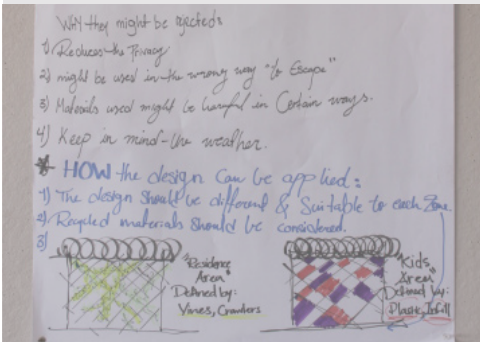 WHY they might be rejected:
1) Reduces the Privacy
2) might be used in the wrong way "to Escape"
3) Materials used might be harmful in Certain ways.
4) Keep in mind the weather.
* HOW the design can be applied:
1) The design should be different & Suitable to each Zone
2) Recycled materials should be considered.
3)
"Residence
Area"
Defined by:
Vines,
"Kids
Area"
Defined by:
Plastic, Infill